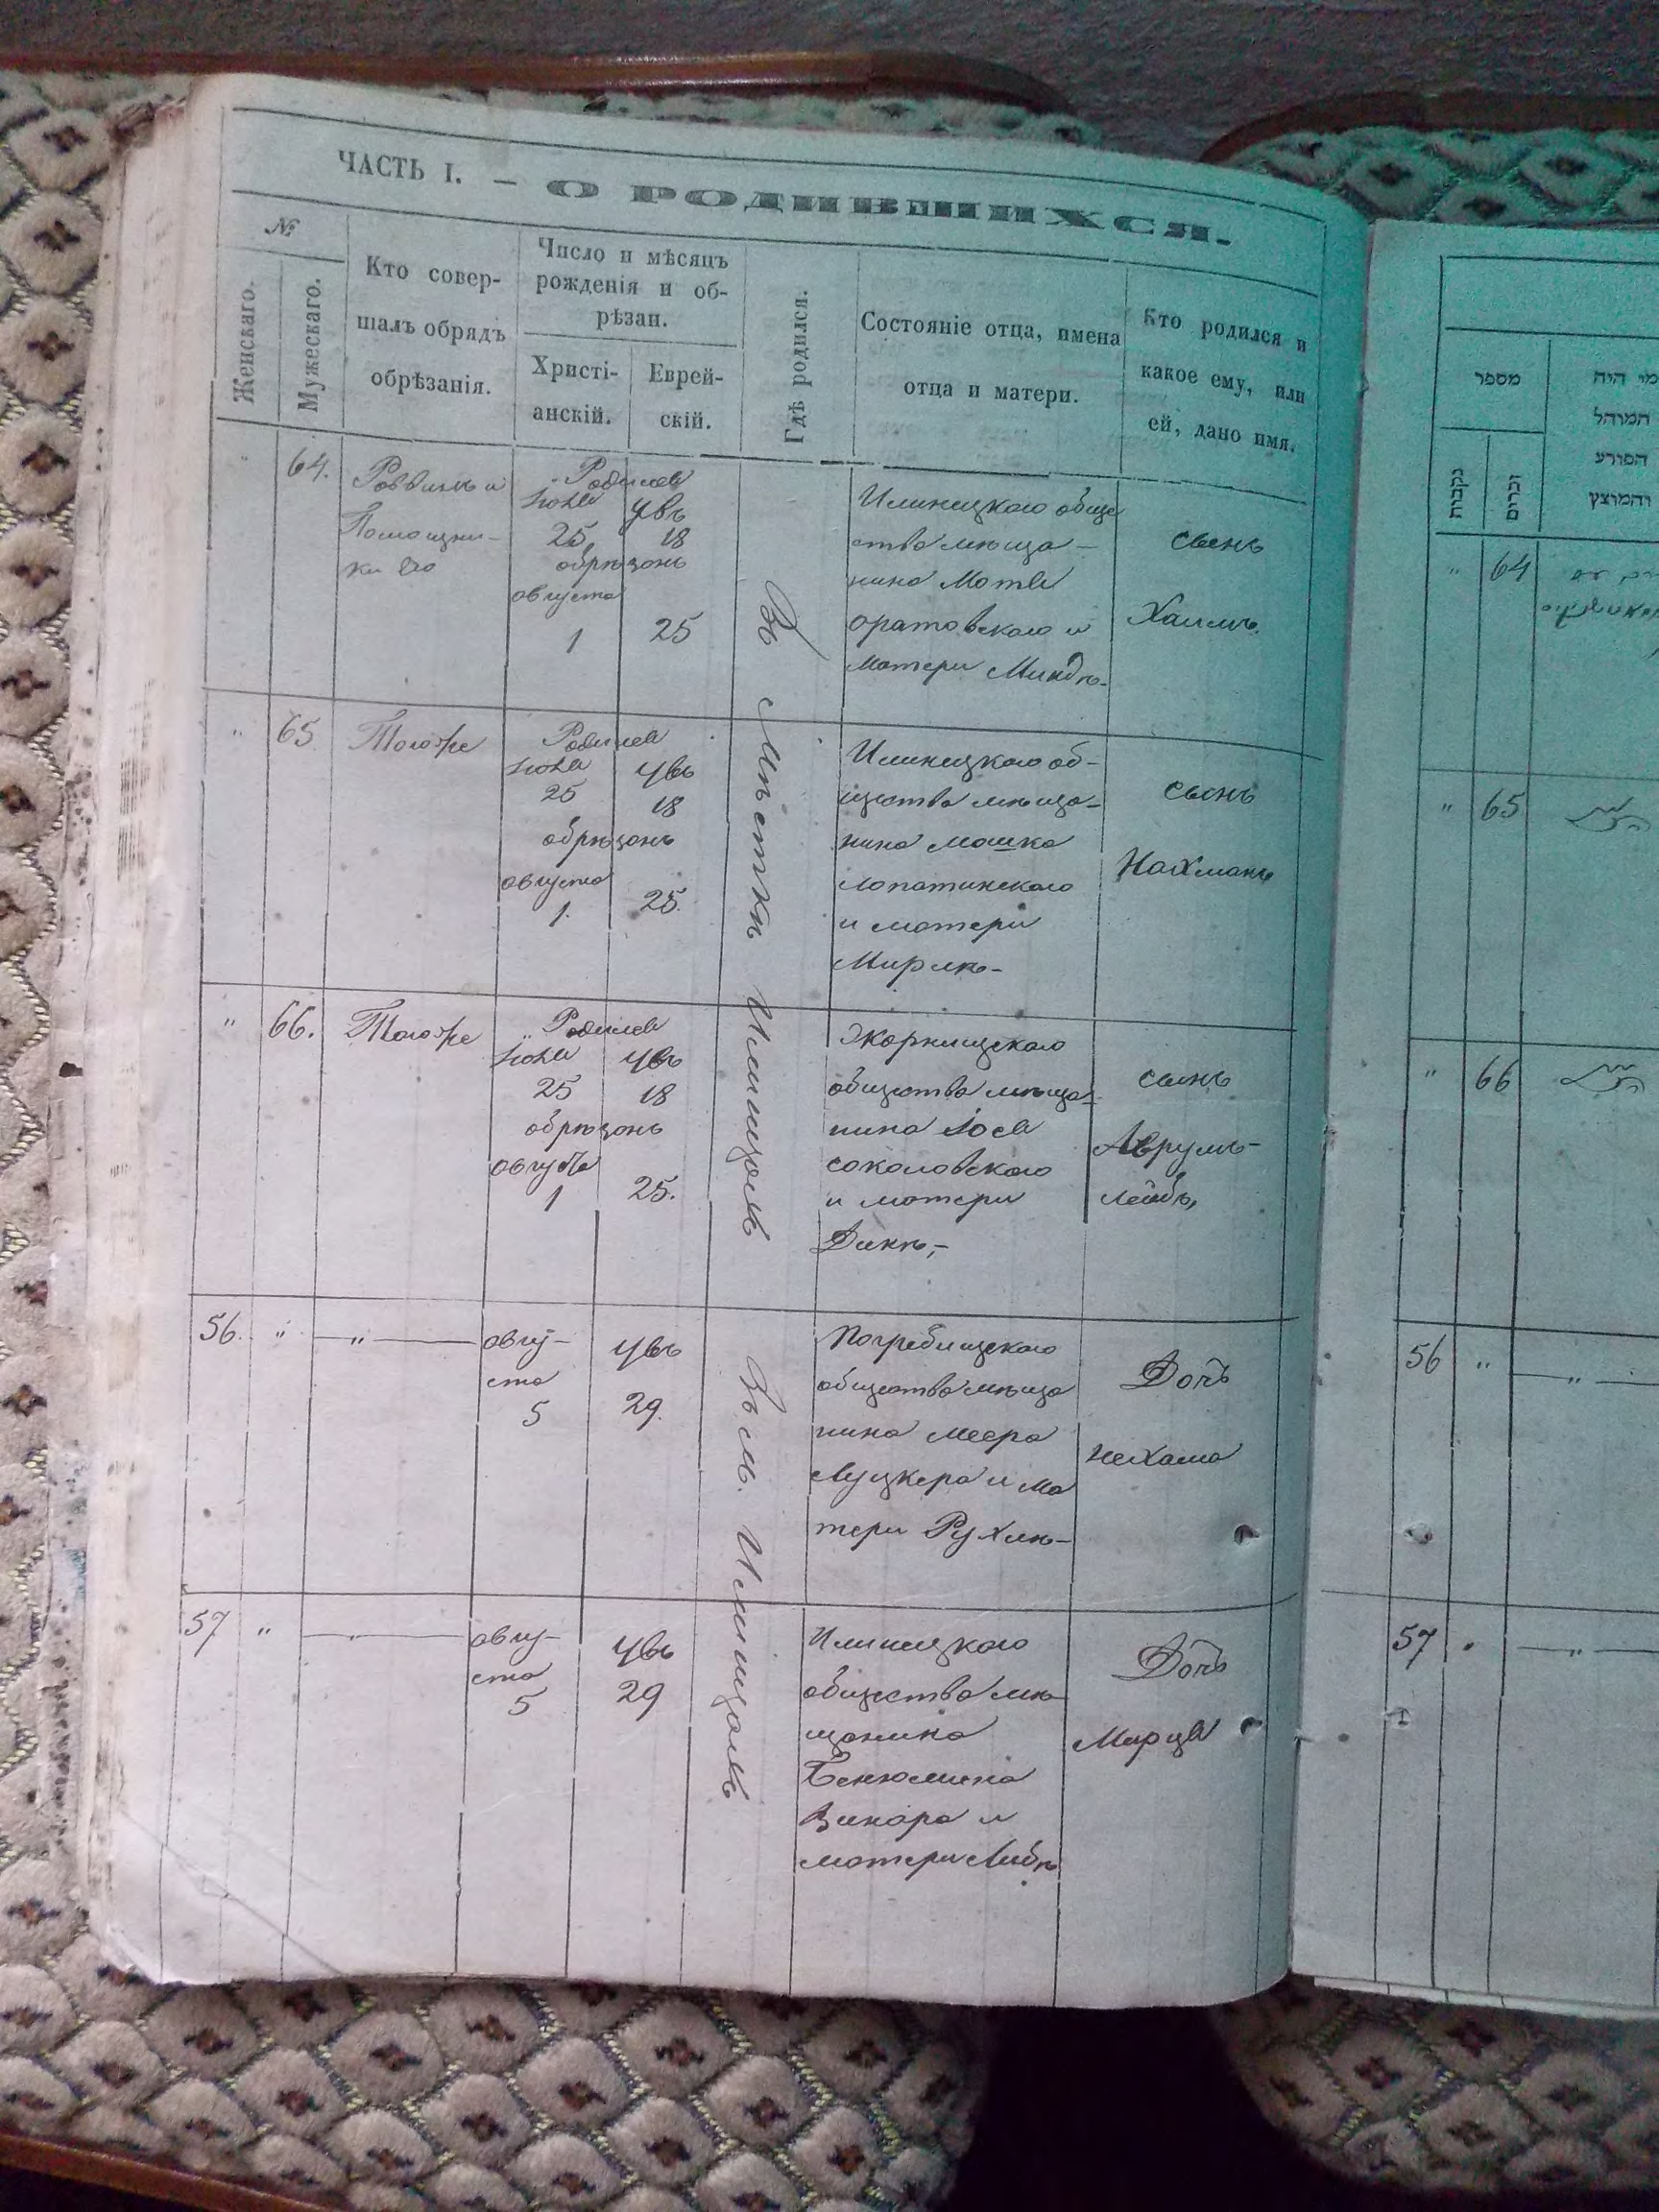 ЧАСТЬ I. — О РОДИВШИХСЯ.
№
Женскаго.
Мужескаго.
Кто совер-
шалъ обрядъ
обрѣзанія.
Число и мѣсяцъ
рожденія и об-
рѣзан.
Христі-
анскій.
Еврей-
скій.
Гдѣ родился.
Состояніе отца, имена
отца и матери.
Кто родился и
какое ему, или
ей, дано имя.
64.
Раввинъ и
Помощни-
ки его
Родился
Іюля
25
Увъ
18
обрѣзанъ
августа
1
25
Въ Мѣсткѣ Илинцахъ
Илинецкаго обще
ства мѣща-
нина Мотя
оратовскаго и
матери Миндѣ-
сынъ
Хаимъ.
" 65
Тогоже
Родился
Іюля
25
Увъ
18
обрѣзанъ
августа
1.
25.
Илинецкаго об-
щества мѣща-
нина Мошка
лопатинскаго
и матери
Мирлѣ-
сынъ
Нахманъ
" 66.
Тогоже
Родился
Іюля
25
Увъ
18
обрѣзанъ
августа
1
25.
общества мѣща-
нина Іося
соколовскаго
и матери
Динѣ,-
сынъ
Аврумъ-
лейбъ,
56. " — " —
авгу-
ста
5
Увъ
29.
Въ м. Илинцахъ
Погребищскаго
общества мѣща
нина Меера
Луцкера и ма
тери Рухлѣ-
Дочь
Нехама
57 " — " —
авгу-
ста
5
Увъ
29
Илинецкаго
общества мѣ-
щанина
Бенюмина
Винара и
матери Либѣ
Дочь
Марця
מספר
נקבות
זכרים
מי היה
המוהל
הפורע
והמוצץ
" 64
" 65
" 66
56 " — " —
57 — " —